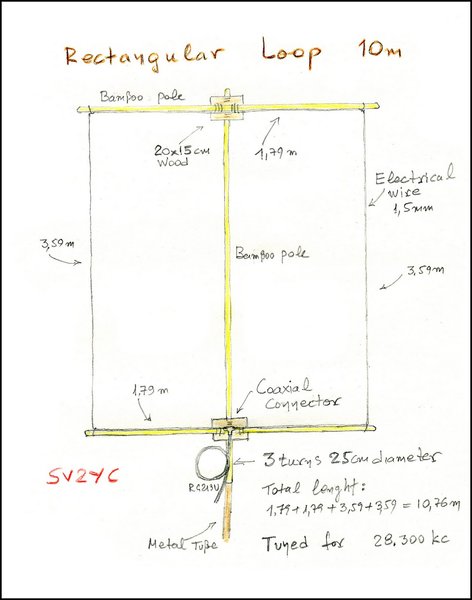 Rectangular Loop 10m
Bamboo pole
20x15cm
Wood
1,79 m
Electrical
wire
1,5mm
3,59 m
Bamboo pole
3,59 m
1,79 m
Coaxial
Connector
3 turns 25cm diameter
SV2YC
RG213U
Total lenght:
1,79+1,79+3,59+3,59 = 10,76m
Metal Tube
Tuned for 28.300 kc